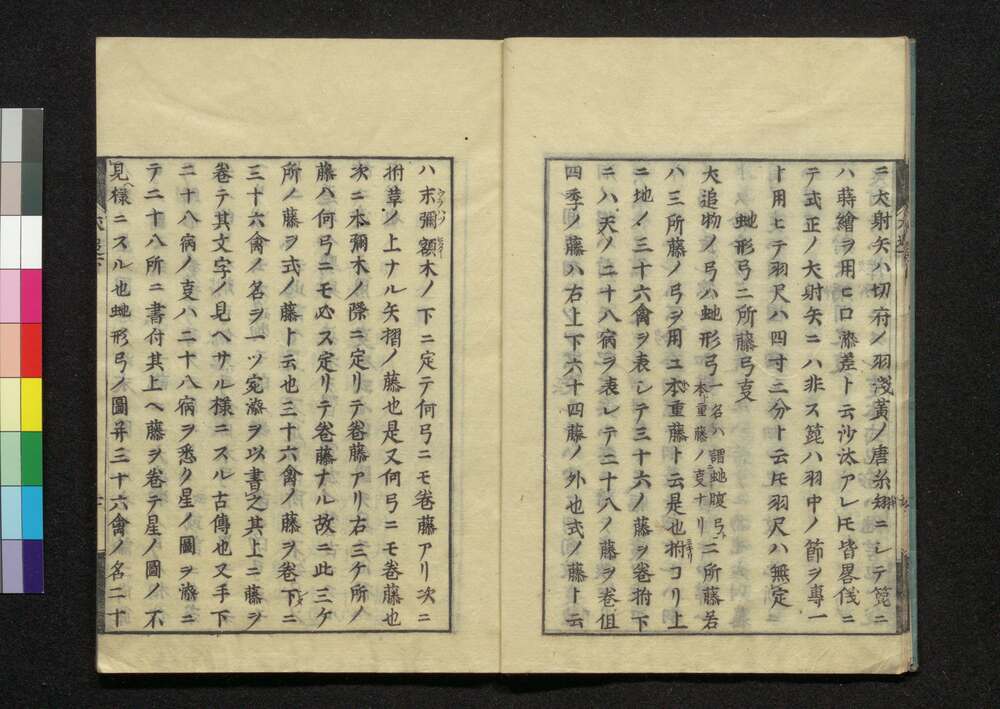 ニ犬射矢ハ切府ノ羽浅黄ノ唐糸矧ニシテ箆ニ
ハ蒔繪ヲ用ヒロ藤差ト云沙汰アレトモ皆畧伐ニ
テ式正ノ犬射矢ニハ非ス箆ハ羽中ノ節ヲ專一
ト用ヒテ羽尺ハ四寸二分ト云トモ羽尺ハ無定
虵形弓二所藤弓㕝
犬追物ノ弓ハ虵形弓一名ハ謂虵腹弓ト本重藤ノ㕝ナリ二所藤若
ハ三所藤ノ弓ヲ用ユ本重藤ト云是也拊コリ上
ニ地ノ三十六禽ヲ表シテ三十六ノ藤ヲ卷拊下
ニハ天ノ二十八宿ヲ表レテ二十八ノ藤ヲ卷但
四季ノ藤ハ右上下六十四藤ノ外也式ノ藤ト云
ハ末彌額木ノ下ニ定テ何弓ニモ卷藤アリ次ニ
拊葦ノ上ナル矢摺ノ藤也是又何弓ニモ卷藤也
次ニ本彌木ノ際ニ定リテ卷藤アリ右三ケ所ノ
藤ハ何弓ニモ必ス定リテ卷藤ナル故ニ此三ケ
所ノ藤ヲ式ノ藤ト云也三十六禽ノ藤ヲ卷下ニ
三十六禽ノ名ヲ一ツ宛漆ヲ以書之其上ニ藤ヲ
卷テ其文字ノ見ヘサル樣ニスル古傳也又手下
二十八宿ノ㕝ハ二十八宿ヲ悉ク星ノ圖ヲ漆ニ
テ二十八所ニ書付其上ヘ藤ヲ卷テ星ノ圖ノ不
見樣ニスル也虵形弓ノ圖并三十六禽ノ名二十